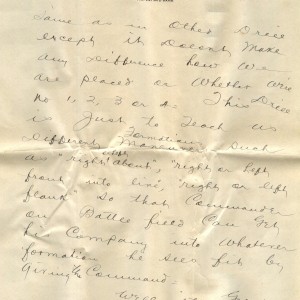 Same as in other Drill
except it Doesent Make
any Difference how We
are placed or Whether We're
No 1, 2, 3 or 4. This Drill
is just to Teach us
Formations
Different Maneuvers Such
as "right about", "right or left
front into line, "right or left
flank" So that Commander
on Battle field Can Get
his Company into Whatever
formation he sees fit by
Giving Command.